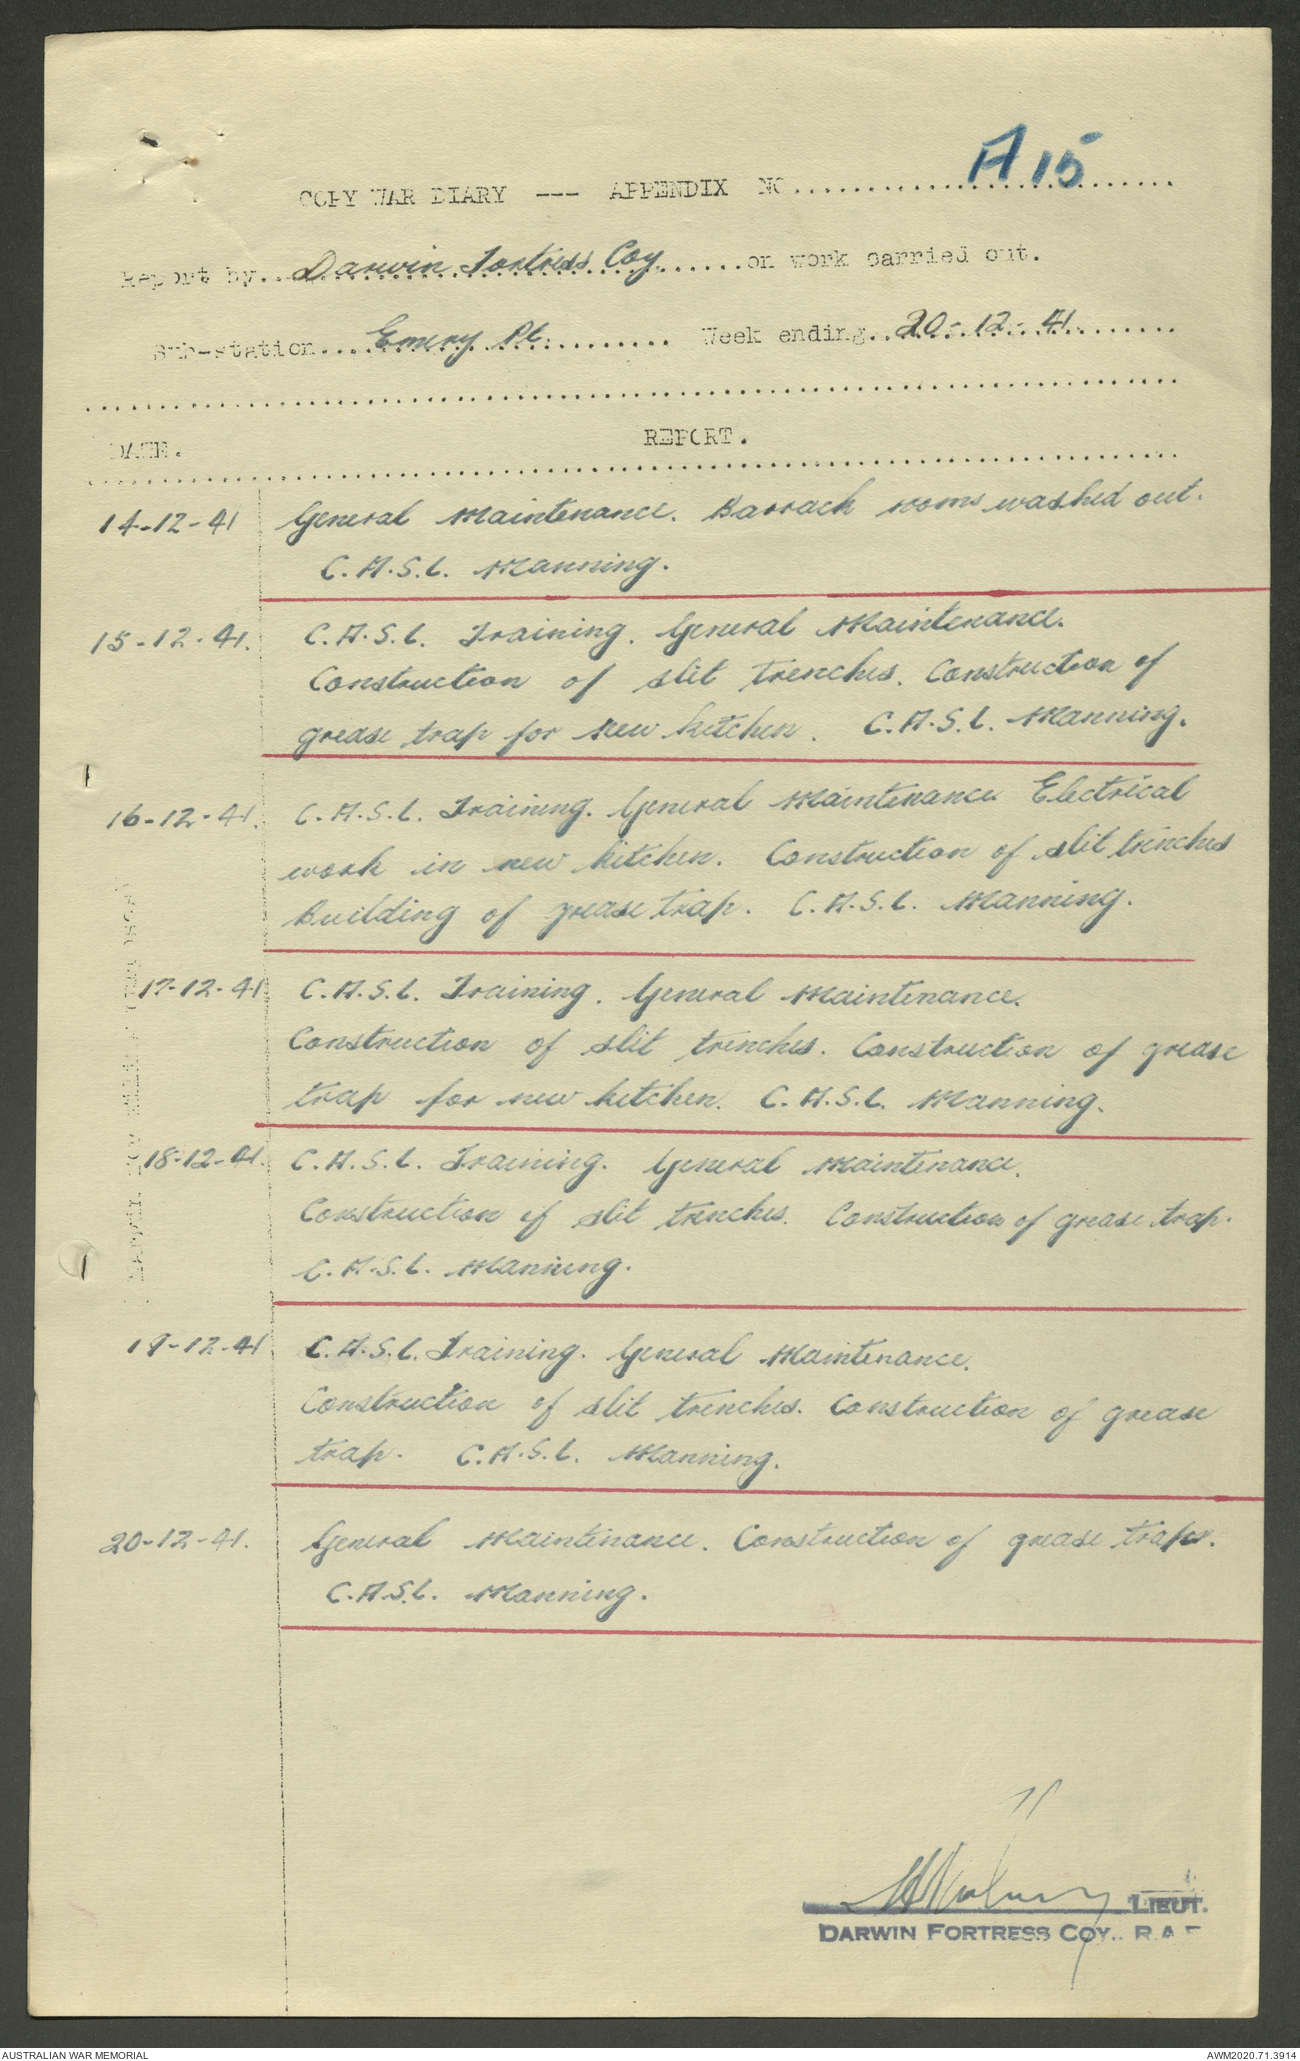 A15
COPY WAR DIARY --- APPENDIX NO..........................
Report by..Darwin Fortress Coy.......on work carried out.
Sub-station....Emery Pt........... Week ending..20-12-41.........
DATE. REPORT.
14-12-41 General Maintenance. Barrack rooms washed out.
C.A.S.L. Manning.
15-12-41. C.A.S.L. Training. General Maintenance.
Construction of slit trenches. Construction of
grease trap for new kitchen. C.A.S.L. Manning.
16-12-41. C.A.S.L. Training. General Maintenance Electrical
work in new kitchen. Construction of slit trenches
building of grease trap. C.A.S.L. Manning.
17-12-41 C.A.S.L. Training. General Maintenance.
Construction of slit trenches. Construction of grease
trap for new kitchen. C.A.S.L. Manning.
18-12-41. C.A.S.L. Training. General Maintenance.
Construction of slit trenches. Construction of grease trap.
C.A.S.L. Manning.
19-12-41 C.A.S.L. Training. General Maintenance.
Construction of slit trenches. Construction of grease
trap. C.A.S.L. Manning.
20-12-41. General Maintenance. Construction of grease trap.
C.A.S.L. Manning.
LIEUT.
DARWIN FORTRESS COY., R.A.E
AUSTRALIAN WAR MEMORIAL
AWM2020.71.3914